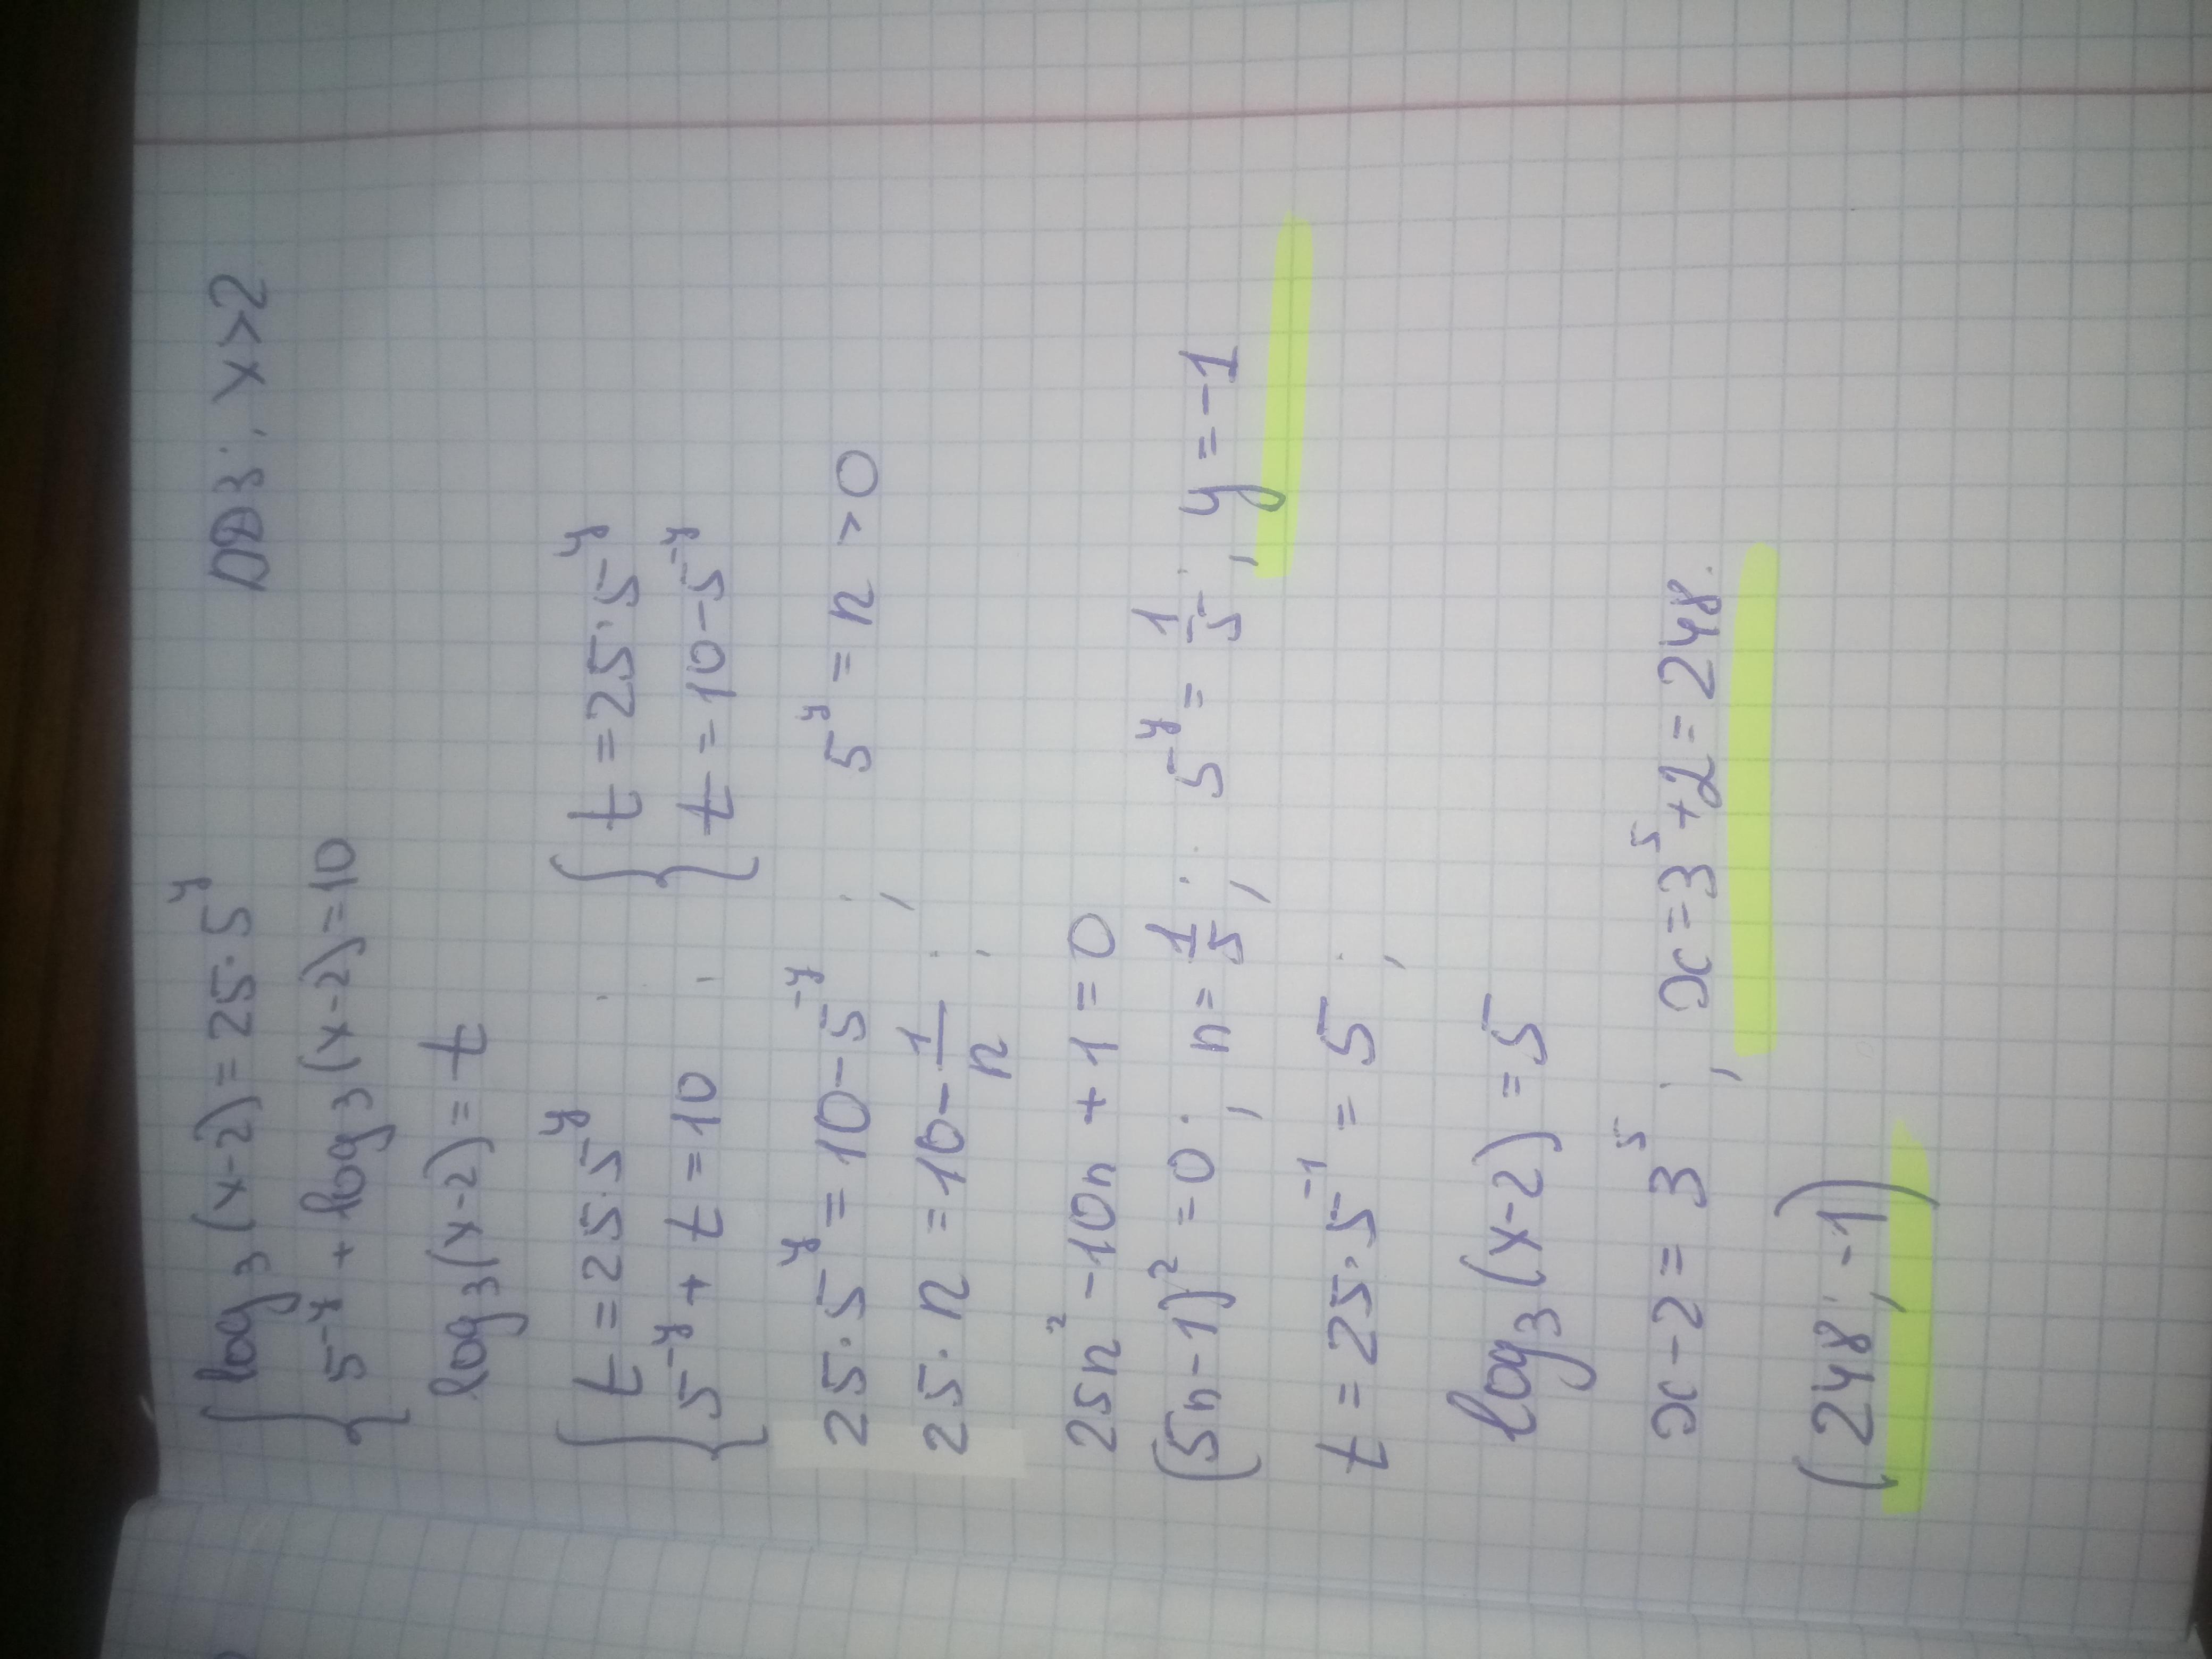 { log₃(x-2)=25·5^y ОДЗ: x>2
5^-y + log₃(x-2)=10
log₃(x-2)=t
{ t=25·5^y ; { t=25·5^y
5^-y + t=10 ; t=10-5^-y
25·5^y=10-5^-y ; 5^y=n>0
25·n=10-1/n ;
25n²-10n+1=0
(5n-1)²=0; n=1/5; 5^y=1/5; y=-1
t=25·5^-1=5;
log₃(x-2)=5
x-2=3^5; x=3^5+2=248.
(248; -1)